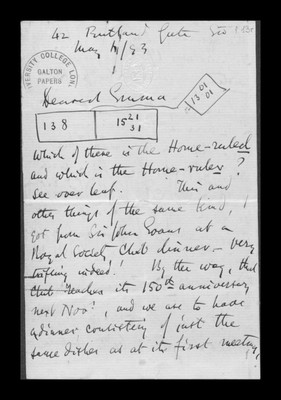 42 Rutland Gate SW
May 4/93
UNIVERSITY COLLEGE LON.
GALTON
PAPERS
Dearest Emma
138
1521
31
1301
01
Which of these is the Home-ruled
and which is the Home-ruler?
See over leaf. This and
other things of the same kind, I
got from Sir John Evans at a
Royal Society Club dinner – very
trifling indeed! By the way, that
Club reaches its 150th anniversary
next Novr, and we are to have
a dinner consisting of just the
same dishes as at its first meeting,